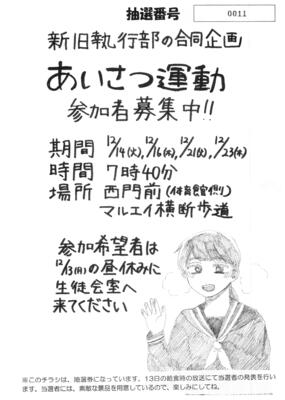 抽選番号 0011
新旧執行部の合同企画
あいさつ運動
参加者募集中!!
期間 12/14(火),12/16(木),12/21(火),12/23(木)
時間 7時40分
場所 西門前(体育館側)
マルエイ横断歩道
参加希望者は
12/13(月)の昼休みに
生徒会室へ
来てください
※このチラシは、抽選券になっています。13日の給食時の放送にて当選者の発表を行い
ます。当選者には、素敵な景品を用意しているので、楽しみにしてね。